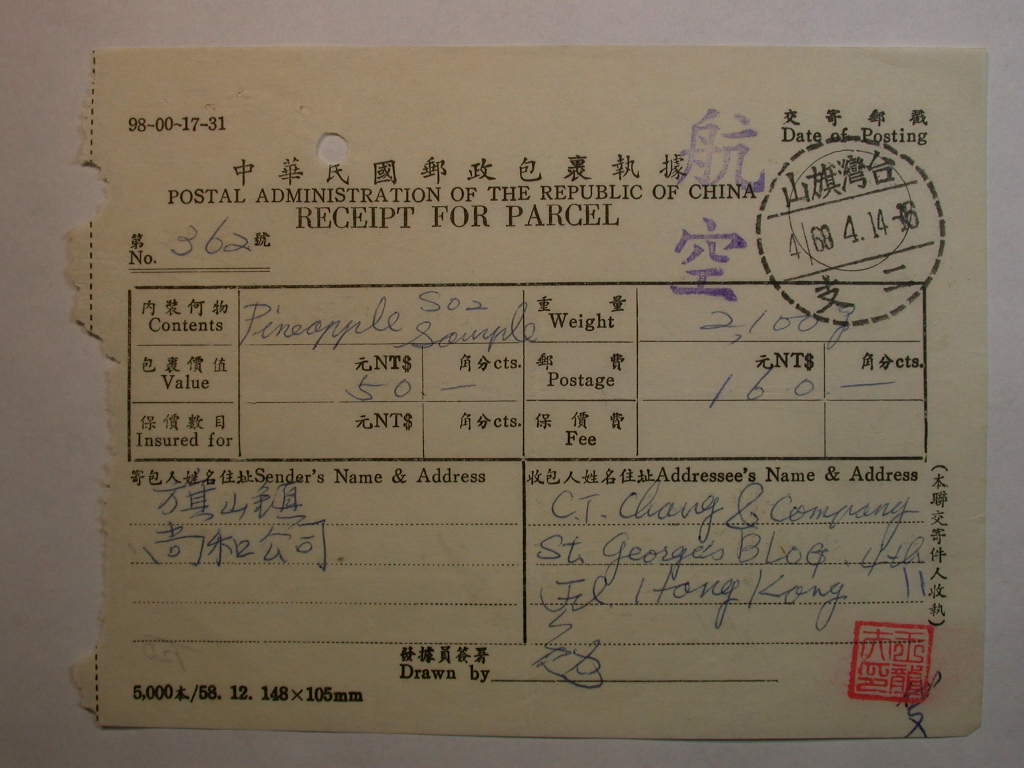 98-00-17-31
交寄郵戳
Date of Posting
航空
中華民國郵政包裹執據
POSTAL ADMINISTRATION OF THE REPUBLIC OF CHINA
RECEIPT FOR PARCEL
台灣旗山
60.4.14
二支
第 362 號
No.
內裝何物 Pineapple 重量 2,100g
Contents Sample Weight
包裹價值 元NT$ 角分cts. 郵費 元NT$ 角分cts.
Value 50 — Postage 160 —
保價數目 元NT$ 角分cts. 保價費
Insured for Fee
寄包人姓名住址Sender's Name & Address
旗山鎮
尚和公司.
收包人姓名住址Addressee's Name & Address
C.T. Chang & Company
St. George's BLDG. 4th
Fl. Hong Kong
(本聯交寄件人收執)
發據員簽署
Drawn by
5,000本/58. 12. 148×105mm